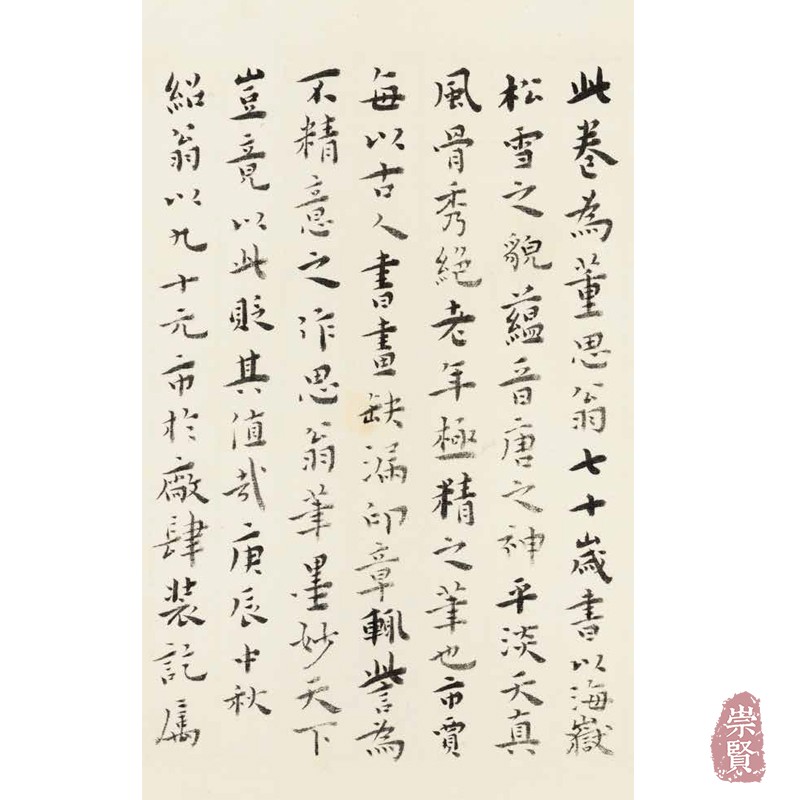 此卷為董思翁七十歲書以海嶽
松雪之貌蘊晉唐之神平淡天真
風骨秀絕老年極精之筆也市賈
每以古人書畫缺漏印章輒訾為
不精意之作思翁筆墨妙天下
豈竟以此貶其值哉庚辰中秋
紹翁以九十元市於廠肆裝訖屬
崇賢